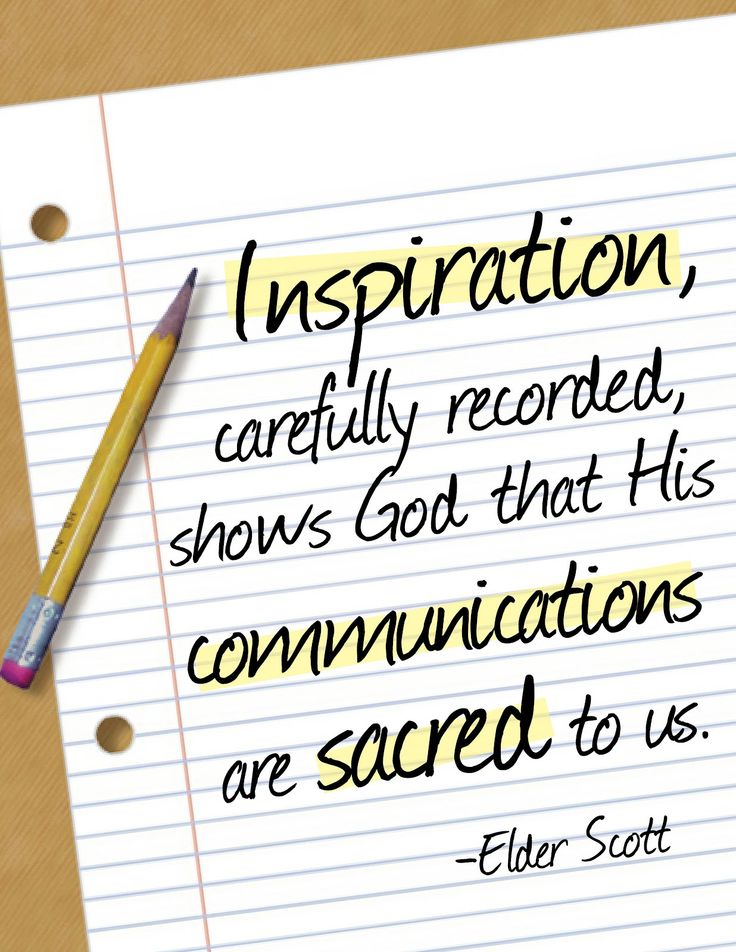 Inspiration,
carefully recorded,
shows God that His
communications
are sacred to us.
-Elder Scott